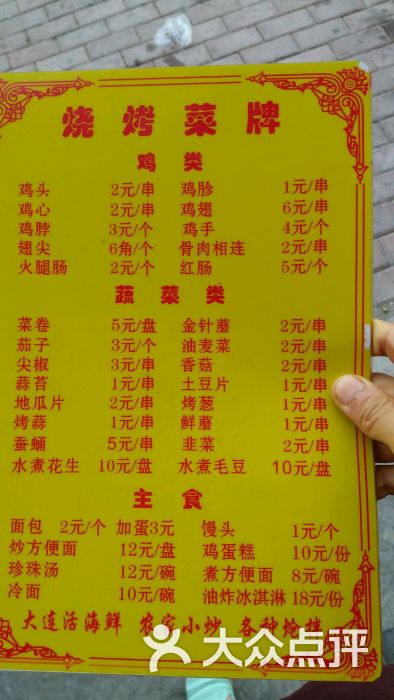 烧烤菜牌
鸡类
鸡头 2元/串 鸡胗 1元/串
鸡心 2元/串 鸡翅 6元/串
鸡脖 3元/个 鸡手 4元/个
翅尖 6角/个 骨肉相连 2元/串
火腿肠 2元/个 红肠 5元/个
蔬菜类
菜卷 5元/盘 金针蘑 2元/串
茄子 3元/个 油麦菜 2元/串
尖椒 3元/串 香菇 2元/串
蒜苔 1元/串 土豆片 1元/串
地瓜片 2元/串 烤葱 1元/串
烤蒜 1元/串 鲜蘑 1元/串
蚕蛹 5元/串 韭菜 2元/串
水煮花生 10元/盘 水煮毛豆 10元/盘
主食
面包 2元/个 加蛋3元 馒头 1元/个
炒方便面 12元/盘 鸡蛋糕 10元/份
珍珠汤 12元/碗 煮方便面 8元/碗
冷面 10元/碗 油炸冰淇淋 18元/份
大连活海鲜 农家小炒 各种炝拌
大众点评